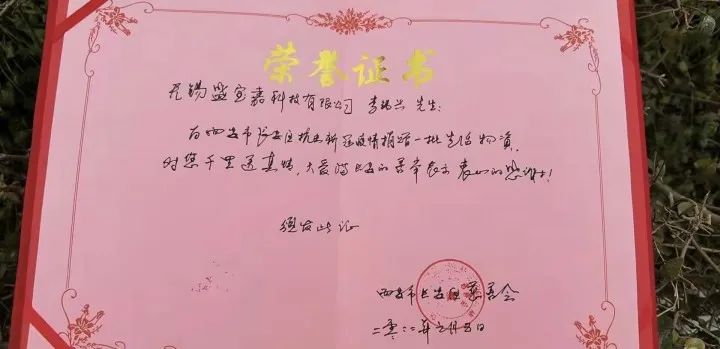 荣誉证书
无锡盛宝嘉科技有限公司 李 兴 先生:
向西安市长安区抗击新冠疫情捐赠一批生活物资,
对您千里送真情,大爱 长安的善举表示衷心的感谢!
特发此证
西安市长安区慈善会
二零二二年元月五日